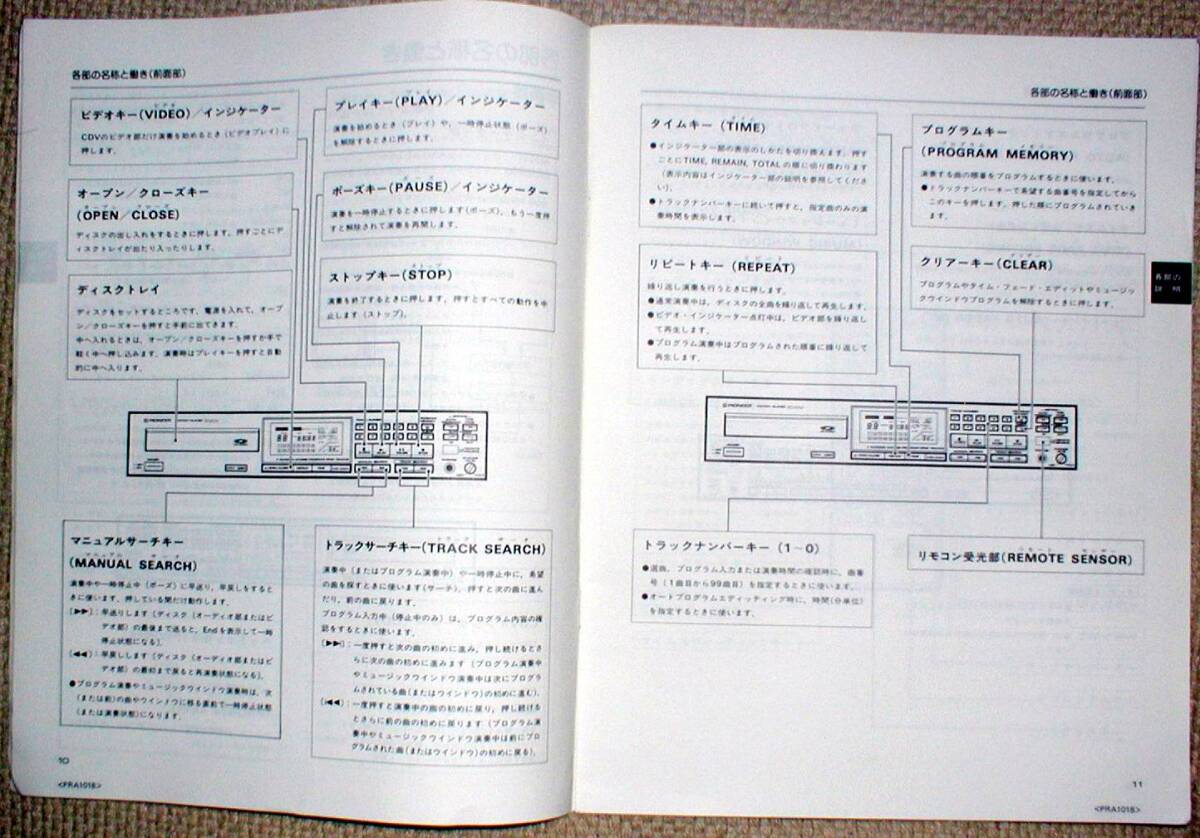 各部の名称と働き(前面部)
ビデオキー(VIDEO)／インジケーター
CDVのビデオ部だけ演奏を始めるとき(ビデオプレイ)に
押します。
オープン／クローズキー
(OPEN／CLOSE)
ディスクの出し入れをするときに押します。押すごとにデ
ィスクトレイが出たり入ったりします。
ディスクトレイ
ディスクをセットするところです。電源を入れて、オープ
ン／クローズキーを押すと手前に出てきます。
中へ入れるときは、オープン／クローズキーを押すか手で
軽く中へ押し込みます。演奏時はプレイキーを押すと自動
的に中へ入ります。
プレイキー(PLAY)／インジケーター
演奏を始めるとき(プレイ)や、一時停止状態(ポーズ)
を解除するときに押します。
ポーズキー(PAUSE)／インジケーター
演奏を一時停止するときに押します(ポーズ)。もう一度押
すと解除されて演奏を再開します。
ストップキー(STOP)
演奏を終了するときに押します。押すとすべての動作を中
止します(ストップ)。
PIONEER
マニュアルサーチキー
(MANUAL SEARCH)
演奏中や一時停止中(ポーズ)に早送り、早戻しをすると
きに使います。押している間だけ動作します。
[▶▶]：早送りします(ディスク(オーディオ部またはビ
デオ部)の最後まで送ると、Endを表示して一時
停止状態になる)。
[◀◀]：早戻しします(ディスク(オーディオ部またはビ
デオ部)の最初まで戻ると再演奏状態になる)。
●プログラム演奏やミュージックウインドウ演奏時は、次
(または前)の曲やウインドウに移る直前で一時停止状態
(または演奏状態)になります。
トラックサーチキー(TRACK SEARCH)
演奏中(またはプログラム演奏中)や一時停止中に、希望
の曲を探すときに使います(サーチ)。押すと次の曲に進ん
だり、前の曲に戻ります。
プログラム入力中(停止中のみ)は、プログラム内容の確
認をするときに使います。
[▶▶|]：一度押すと次の曲の初めに進み、押し続けるとさ
らに次の曲の初めに進みます(プログラム演奏中
やミュージックウインドウ演奏中は次にプログラ
ムされている曲(またはウインドウ)の初めに進む)。
[|◀◀]：一度押すと演奏中の曲の初めに戻り、押し続ける
とさらに前の曲の初めに戻ります(プログラム演
奏中やミュージックウインドウ演奏中は前にプロ
グラムされた曲(またはウインドウ)の初めに戻る)。
10
<PRA1018>
各部の名称と働き(前面部)
タイムキー(TIME)
●インジケーター部の表示のしかたを切り換えます。押す
ごとにTIME, REMAIN, TOTALの順に切り換わります
(表示内容はインジケーター部の説明を参照してくださ
い)。
●トラックナンバーキーに続いて押すと、指定曲のみの演
奏時間を表示します。
リピートキー(REPEAT)
繰り返し演奏を行うときに押します。
●通常演奏中は、ディスクの全曲を繰り返して再生します。
●ビデオ・インジケーター点灯中は、ビデオ部を繰り返し
て再生します。
●プログラム演奏中はプログラムされた順番に繰り返して
再生します。
プログラムキー
(PROGRAM MEMORY)
演奏する曲の順番をプログラムするときに使います。
●トラックナンバーキーで希望する曲番号を指定してから
このキーを押します。押した順にプログラムされていき
ます。
クリアーキー(CLEAR)
プログラムやタイム・フェード・エディットやミュージッ
クウインドウプログラムを解除するときに押します。
各部の
説明
PIONEER
トラックナンバーキー(1～0)
●選曲、プログラム入力または演奏時間の確認時に、曲番
号(1曲目から99曲目)を指定するときに使います。
●オートプログラムエディッティング時に、時間(分単位)
を指定するときに使います。
リモコン受光部(REMOTE SENSOR)
11
<PRA1018>